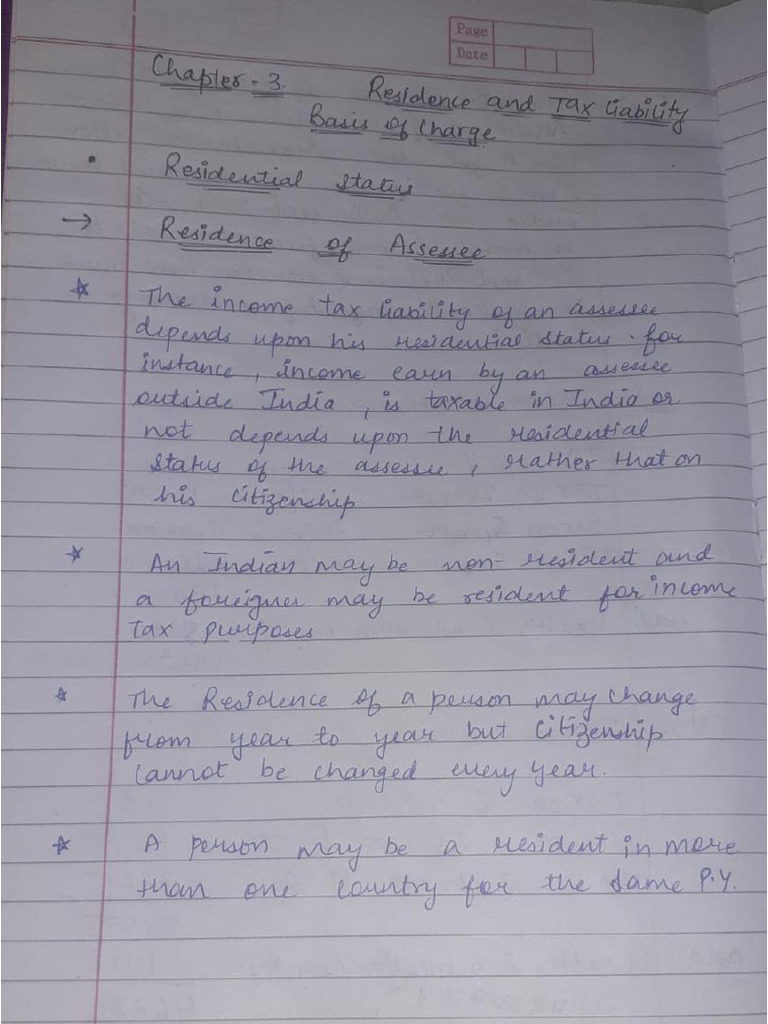 Page
Date
Chapter - 3. Residence and Tax liability
Basis of Charge
• Residential Status
→ Residence of Assessee
☆ The income tax liability of an assessee
depends upon his residential status. for
instance, income earn by an assessee
outside India, is taxable in India or
not depends upon the residential
status of the assessee, rather that on
his citizenship
☆ An Indian may be non-resident and
a foreigner may be resident for income
Tax purposes
☆ The Residence of a person may change
from year to year but citizenship
cannot be changed every year.
☆ A person may be a resident in more
than one country for the same P.Y.